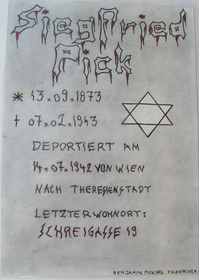 Siegfried
Pick
* 13.09.1873
† 07.02.1943
DEPORTIERT AM
14.07.1942 VON WIEN
NACH THERESIENSTADT
LETZTER WOHNORT:
SCHREIGASSE 19
BENJAMIN